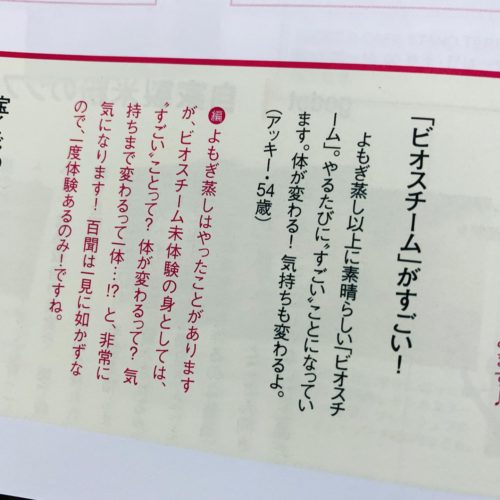 「ビオスチーム」がすごい！
よもぎ蒸し以上に素晴らしい「ビオスチ
ーム」。やるたびに〝すごい〟ことになってい
ます。体が変わる！気持ちも変わるよ。
（アッキー・54歳）
編 よもぎ蒸しはやったことがあります
が、ビオスチーム未体験の身としては、
〝すごい〟ことって？体が変わるって？気
持ちまで変わるって一体…!?と、非常に
気になります！百聞は一見に如かずな
ので、一度体験あるのみ！ですね。